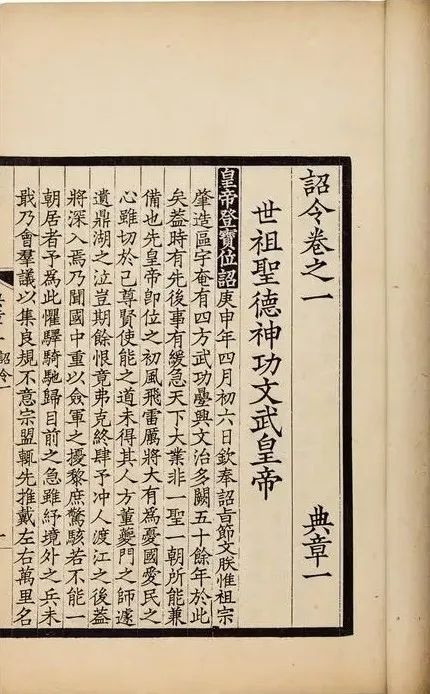 詔令卷之一 典章一
世祖聖德神功文武皇帝
皇帝登寶位詔庚申年四月初六日欽奉詔旨節文朕惟祖宗
肇造區宇奄有四方武功疊興文治多闕五十餘年於此
矣葢時有先後事有緩急天下大業非一聖一朝所能兼
備也先皇帝卽位之初風飛雷厲將大有爲憂國愛民之
心雖切於己尊賢使能之道未得其人方董夔門之師遽
遺鼎湖之泣豈期餘恨竟弗克終肆予冲人渡江之後葢
將深入焉乃聞國中重以僉軍之擾黎庶驚駭若不能一
朝居者予爲此懼驛騎馳歸目前之急雖紓境外之兵未
戢乃會羣議以集良規不意宗盟輒先推戴左右萬里名